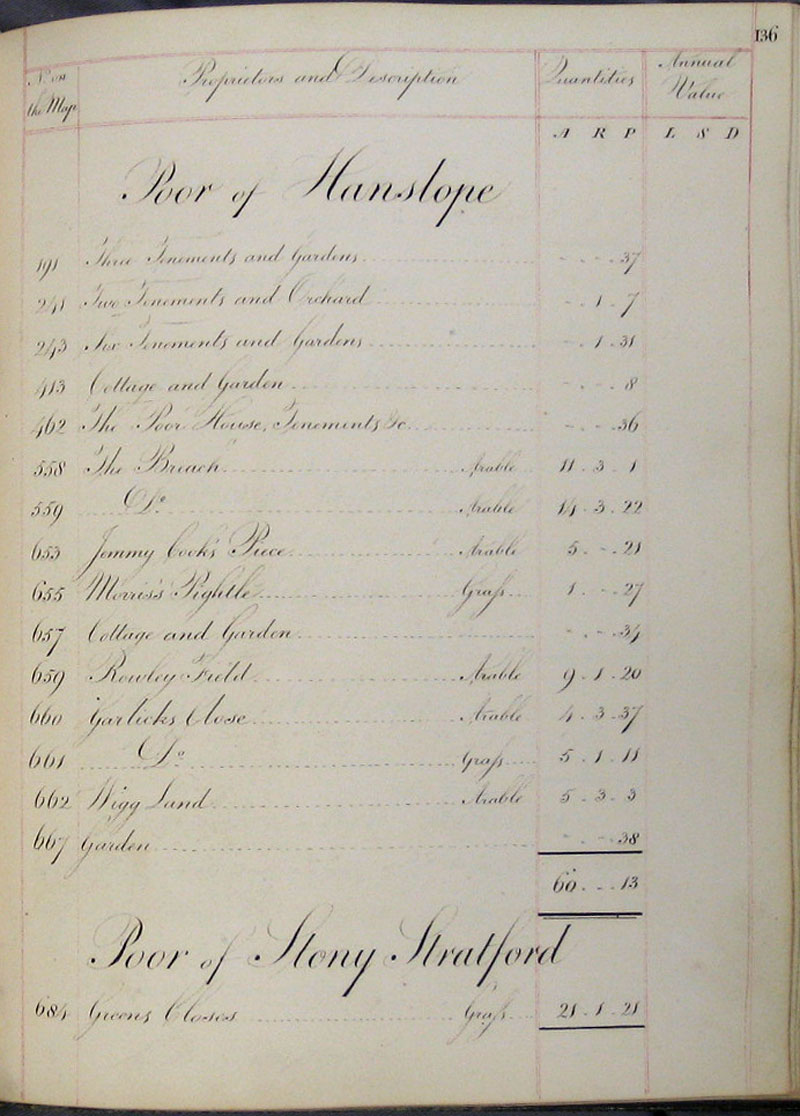 136
No. on the Map Proprietors and Description Quantities Annual Value
A R P L S D
Poor of Hanslope
191 Three Tenements and Gardens - - 37
241 Two Tenements and Orchard - 1 7
243 Six Tenements and Gardens - 1 31
413 Cottage and Garden - - 8
462 The Poor House, Tenements &c - - 36
558 The Breach Arable 11 3 1
559 Do. Arable 14 3 22
653 Jemmy Cook's Piece Arable 5 - 21
655 Morris's Pightle Grass 1 - 27
657 Cottage and Garden - - 34
659 Rowley Field Arable 9 1 20
660 Garlicks Close Arable 4 3 37
661 Do. Grass 5 1 11
662 Wigg Land Arable 5 3 3
667 Garden - - 38
60 - 13
Poor of Stony Stratford
684 Greens Closes Grass 21 1 21